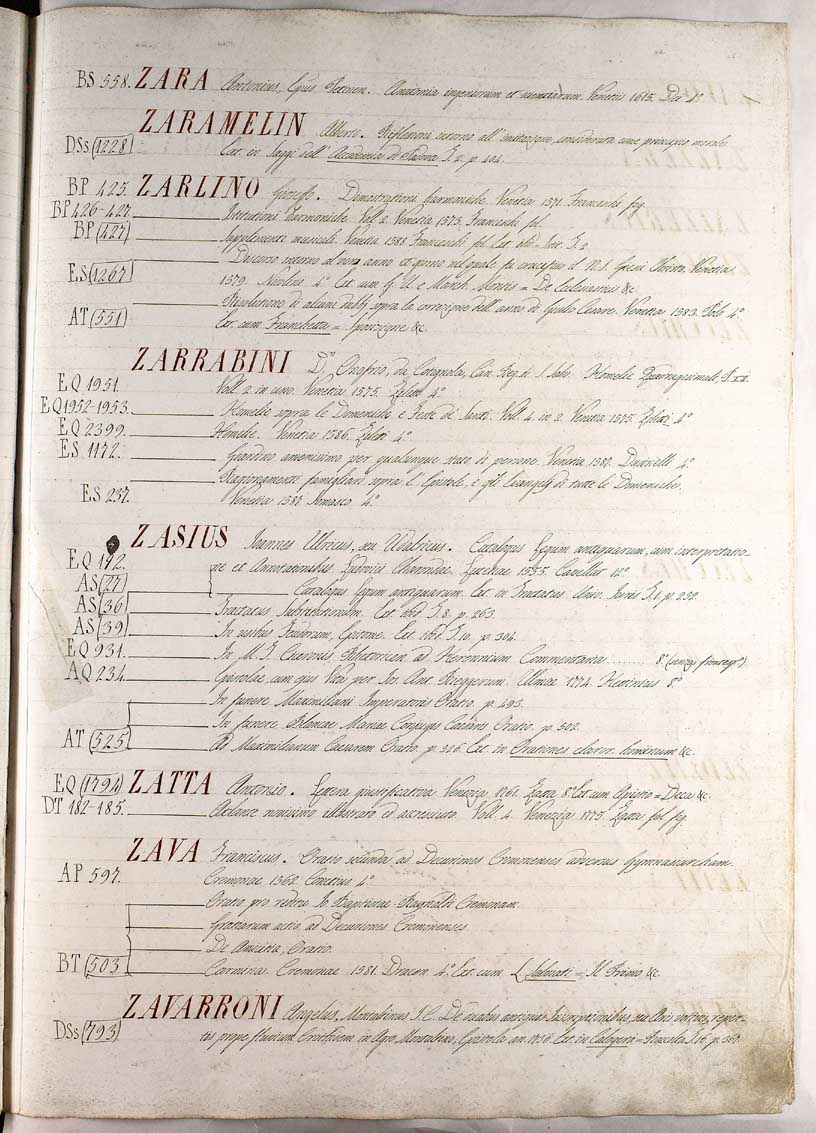 BS 558. ZARA Antonius, Epüs Petinen. Anatomia ingeniorum et scientiarum. Venetiis 1615. 4°
ZARAMELIN Alberto. Riflessioni intorno all' imitazione, considerata come principio morale.
DSs (1228) Ext. in Saggi dell' Academia di Padova T. 2. p. 404.
BP 425. ZARLINO Gioseffo. Dimostrationi harmoniche. Venetia 1571. Franceschi fog.
BP 426-427. Istitutioni harmoniche. Voll. 2. Venetia 1573. Franceschi fol.
BP (427) Supplementi musicali. Venetia 1588. Franceschi fol. Ext. ibid. T. 2
Discorso intorno al vero anno et giorno nel quale fu crocefisso il N. S. Giesù Christo. Venetia
ES (1267) 1579. Nicolini 4° Ext. cum March. Moresis = De Calendariis &c.
Risolutione di alcuni dubbj sopra la correzione dell' anno di Giulio Cesare. Venetia 1583. Polo 4°
AT (551) Ext. cum Franchetta = Sposizione &c.
ZARRABINI Dⁿ Onofrio, da Cotignola, Can. Reg. di S. Salv. Homelie Quaresimali,
EQ 1951. Voll. 2 in uno. Venetia 1575. Ziletti 4°
EQ 1952-1953. Homelie sopra le Domeniche e Feste de' Santi. Voll. 4 in 2. Venetia 1575. Ziletti 4°
EQ 2399. Homelie. Venetia 1586. Ziletti 4°
ES 1172. Giardino amenissimo per qualunque stato di persone. Venetia 1587. 4°
Ragionamenti famigliari sopra l' Epistole, e gli Evangelj di tutte le Domeniche.
ES 237. Venetia 1587 Somasco 4°
ZASIUS Joannes Ulricus, seu Udalricus. Catalogus Legum antiquarum, cum interpretatio-
EQ 112. ne et Annotationibus Ludovici Charondae. Lutetiae 1555. Cavellat 12°
AS (27) Catalogus legum antiquarum. Ext. in Tractatus Univ. Juris T. 1. p. 232.
AS (36) Tractatus Substitutionum. Ext. ibid. T. 8. p. 263.
AS (39) In usibus Feudorum, Epitome. Ext. ibid. T. 10. p. 304.
EQ 931. In M. T. Ciceronis Rhetoricen ad Herennium Commentaria ........ 8° (senza frontesp°)
AQ 234. Epistolae, cum ejus Vita per Jos. Ant. Rieggerum. Ulmae 1774. 8°
In funere Maximiliani Imperatoris Oratio. p. 495.
In funere Blancae Mariae Conjugis Caesaris Oratio. p. 502.
AT (525) Ad Maximilianum Caesarem Oratio. p. 526. Ext. in Orationes claror. hominum &c.
EQ (1794) ZATTA Antonio. Lettera giustificativa. Venezia 1761. Zatta, 8° Ext. cum = Deca &c.
DT 182-185. Atlante novissimo illustrato ed accresciuto. Voll. 4. Venezia 1775. Zatta fol. fig.
ZAVA Franciscus. Oratio secunda ad Decuriones Cremonenses adversus Gymnasiarcham.
AP 597. Cremonae 1562. 4°
Oratio pro reditu Jo. Baptistae Raynoldi Cremonam.
Gratiarum actio ad Decuriones Cremonenses.
De Amicitia, Oratio.
BT (503) Carmina. Cremonae 1581. Dracon. 4° Ext. cum L. Salviati = Il Primo &c.
ZAVARRONI Angelus, Montaltinus J. C. De duabus antiquis Inscriptionibus, seu Aris votivis, reper-
DSs (793) tis prope fluvium Crathidem in Agro Montaltino, Epistola an. 1736. Ext. in Calogerà = Raccolta T. 16. p.